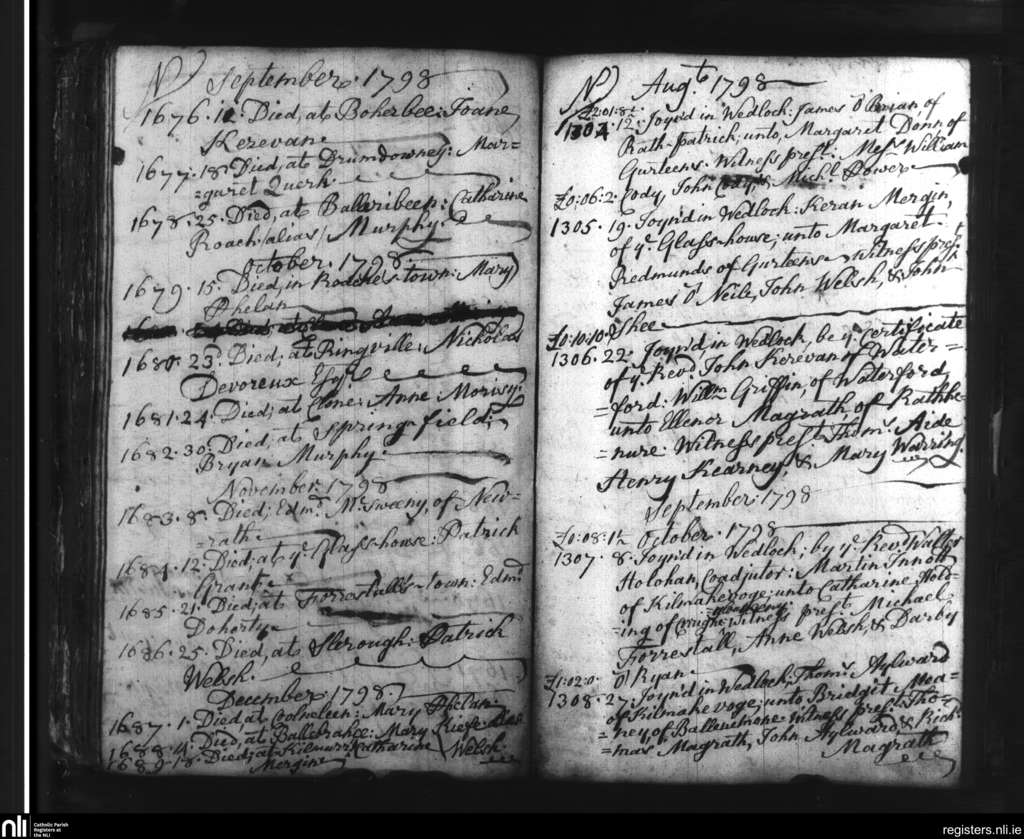 No September. 1798
1676. 12. Died, at Boherbee: Joane
Kerevan
1677. 18. Died, at Drumdowney: Mar=
=garet Querk
1678. 25. Died, at Balleribeen: Catharine
Roach /alias/ Murphy
October. 1798.
1679. 15. Died, in Roche's-town: Mary
Phelan
1680. 23d. Died; at Ringville, Nicholas
Devoreux Esqr.
1681. 24. Died; at Clone: Anne Morisy:
1682. 30. Died; at Spring-field;
Bryan Murphy
November. 1798
1683. 8. Died; Edmd. McSweeny, of New=
=rath
1684. 12. Died; at ye. Glass-house: Patrick
Grant
1685. 21. Died; at Forrestall's-town: Edmd
Doherty
1686. 25. Died, at Slerough: Patrick
Welsh.
December. 1798.
1687. 1. Died, at Coolneleen: Mary Phelan
1688. 4. Died, at Ballebrahee: Mary Kiefe
1689. 18. Died; at Kilmurry: Catharine Welsh.
Mergin
No Augt. 1798
1304. 12. Joyn'd in Wedlock: James O'Brian of
Rath-patrick; unto, Margaret Donn of
Gurteens. Witness prest. Mesrs. William
£0:06:2. Cody, John Cody, & Michl. Power
1305. 19. Joyn'd in Wedlock: Keran Mergin,
of ye. Glass-house; unto Margaret
Redmunds of Gurteens. Witness prest.
James O'Neile, John Welsh, & John
£0:10:10 Shee
1306. 22. Joyn'd in Wedlock, be ye. Certificate
of ye. Revd. John Kerevan of Water=
=ford: Willm Griffin, of Waterford,
unto Ellenor Magrath, of Rathbe=
=nure: Witness prest Thoms. Aide
Henry Kearney & Mary Warring.
September. 1798
£0:08:1½ October. 1798
1307. 8. Joyn'd in Wedlock; by ye. Revd Walter
Holohan, Coadjutor: Martin Innott
of Kilmakevoge; unto Catharine Hold=
=ing of Witness prest Michael
Forrestall, Anne Welsh, & Darby
£1:02:0 O'Ryan
1308. 27. Joyn'd in Wedlock: Thoms. Aylward
of Kilmakevoge; unto Bridgit Mea=
=ney, of Ballinelnone. Witness prest. Tho=
=mas Magrath, John Aylward, & Richd.
Magrath
nli
Catholic Parish
Registers at
the NLI
registers.nli.ie